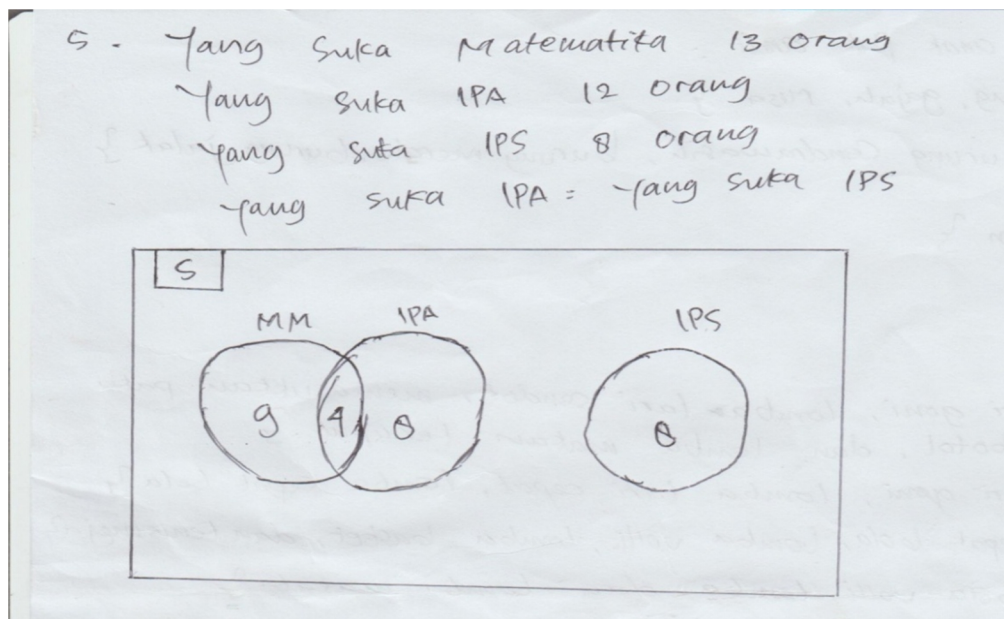 5. Yang suka Matematika 13 orang
Yang suka IPA 12 orang
Yang suka IPS 8 orang
Yang suka IPA = Yang suka IPS
S
MM IPA IPS
9 4 8 8